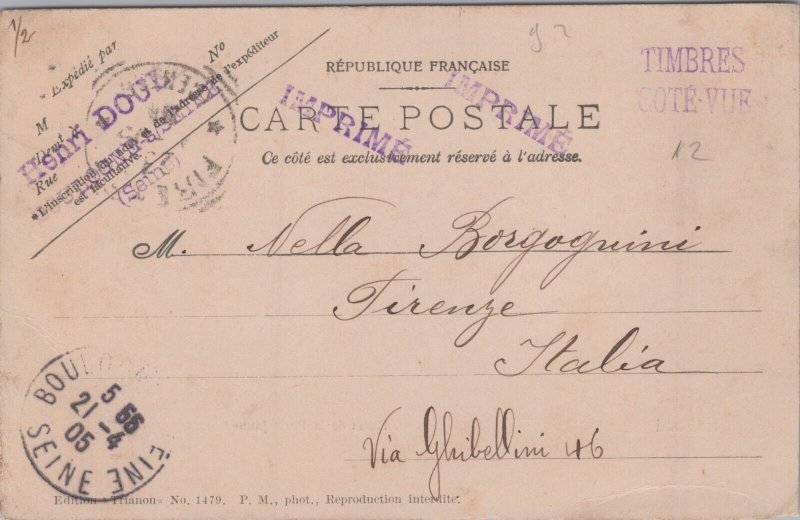 1/2
Expédié par
No
M
Demt à
Rue
*L'inscription du nom et de l'adresse de l'expéditeur
est facultative.
Henri DOU
(Seine)
FIRE
92
RÉPUBLIQUE FRANÇAISE
CARTE POSTALE
Ce côté est exclusivement réservé à l'adresse.
IMPRIMÉ
IMPRIMÉ
TIMBRES
COTÉ-VUE
A2
M. Nella Borgognini
Firenze
Italia
Via Ghibellini 46
BOULOGN
5 55
21 -4
05
SEINE
EINE
Edition «Trianon» No. 1479. P. M., phot., Reproduction interdite.